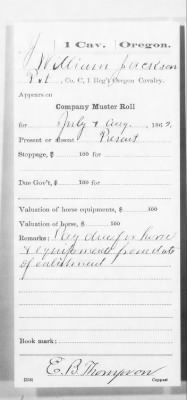 J 1 Cav. Oregon.
William Jackson
Pvt, Co. C, 1 Reg't Oregon Cavalry.
Appears on
Company Muster Roll
for July & Aug, 1862.
Present or absent Present
Stoppage, $ 100 for
Due Gov't, $ 100 for
Valuation of horse equipments, $ 100
Valuation of horse, $ 100
Remarks: Pay due for horse
& equipments from date
of enlistment
Book mark:
E. B. Thompson
Copyist.